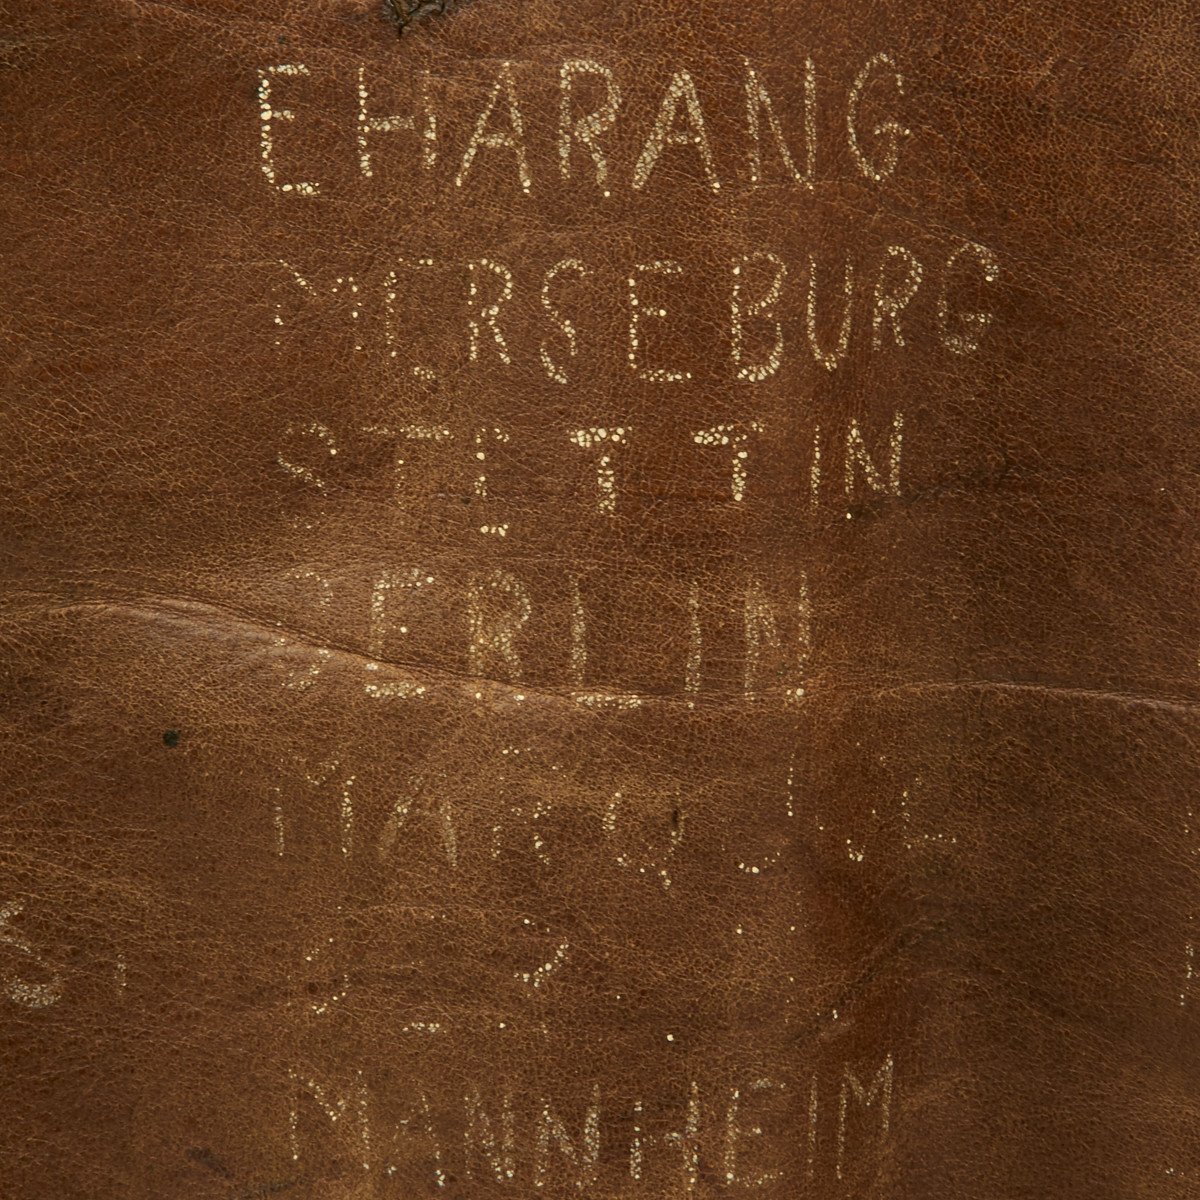 EHARANG
MERSEBURG
STETTIN
BERLIN
MANNHEIM